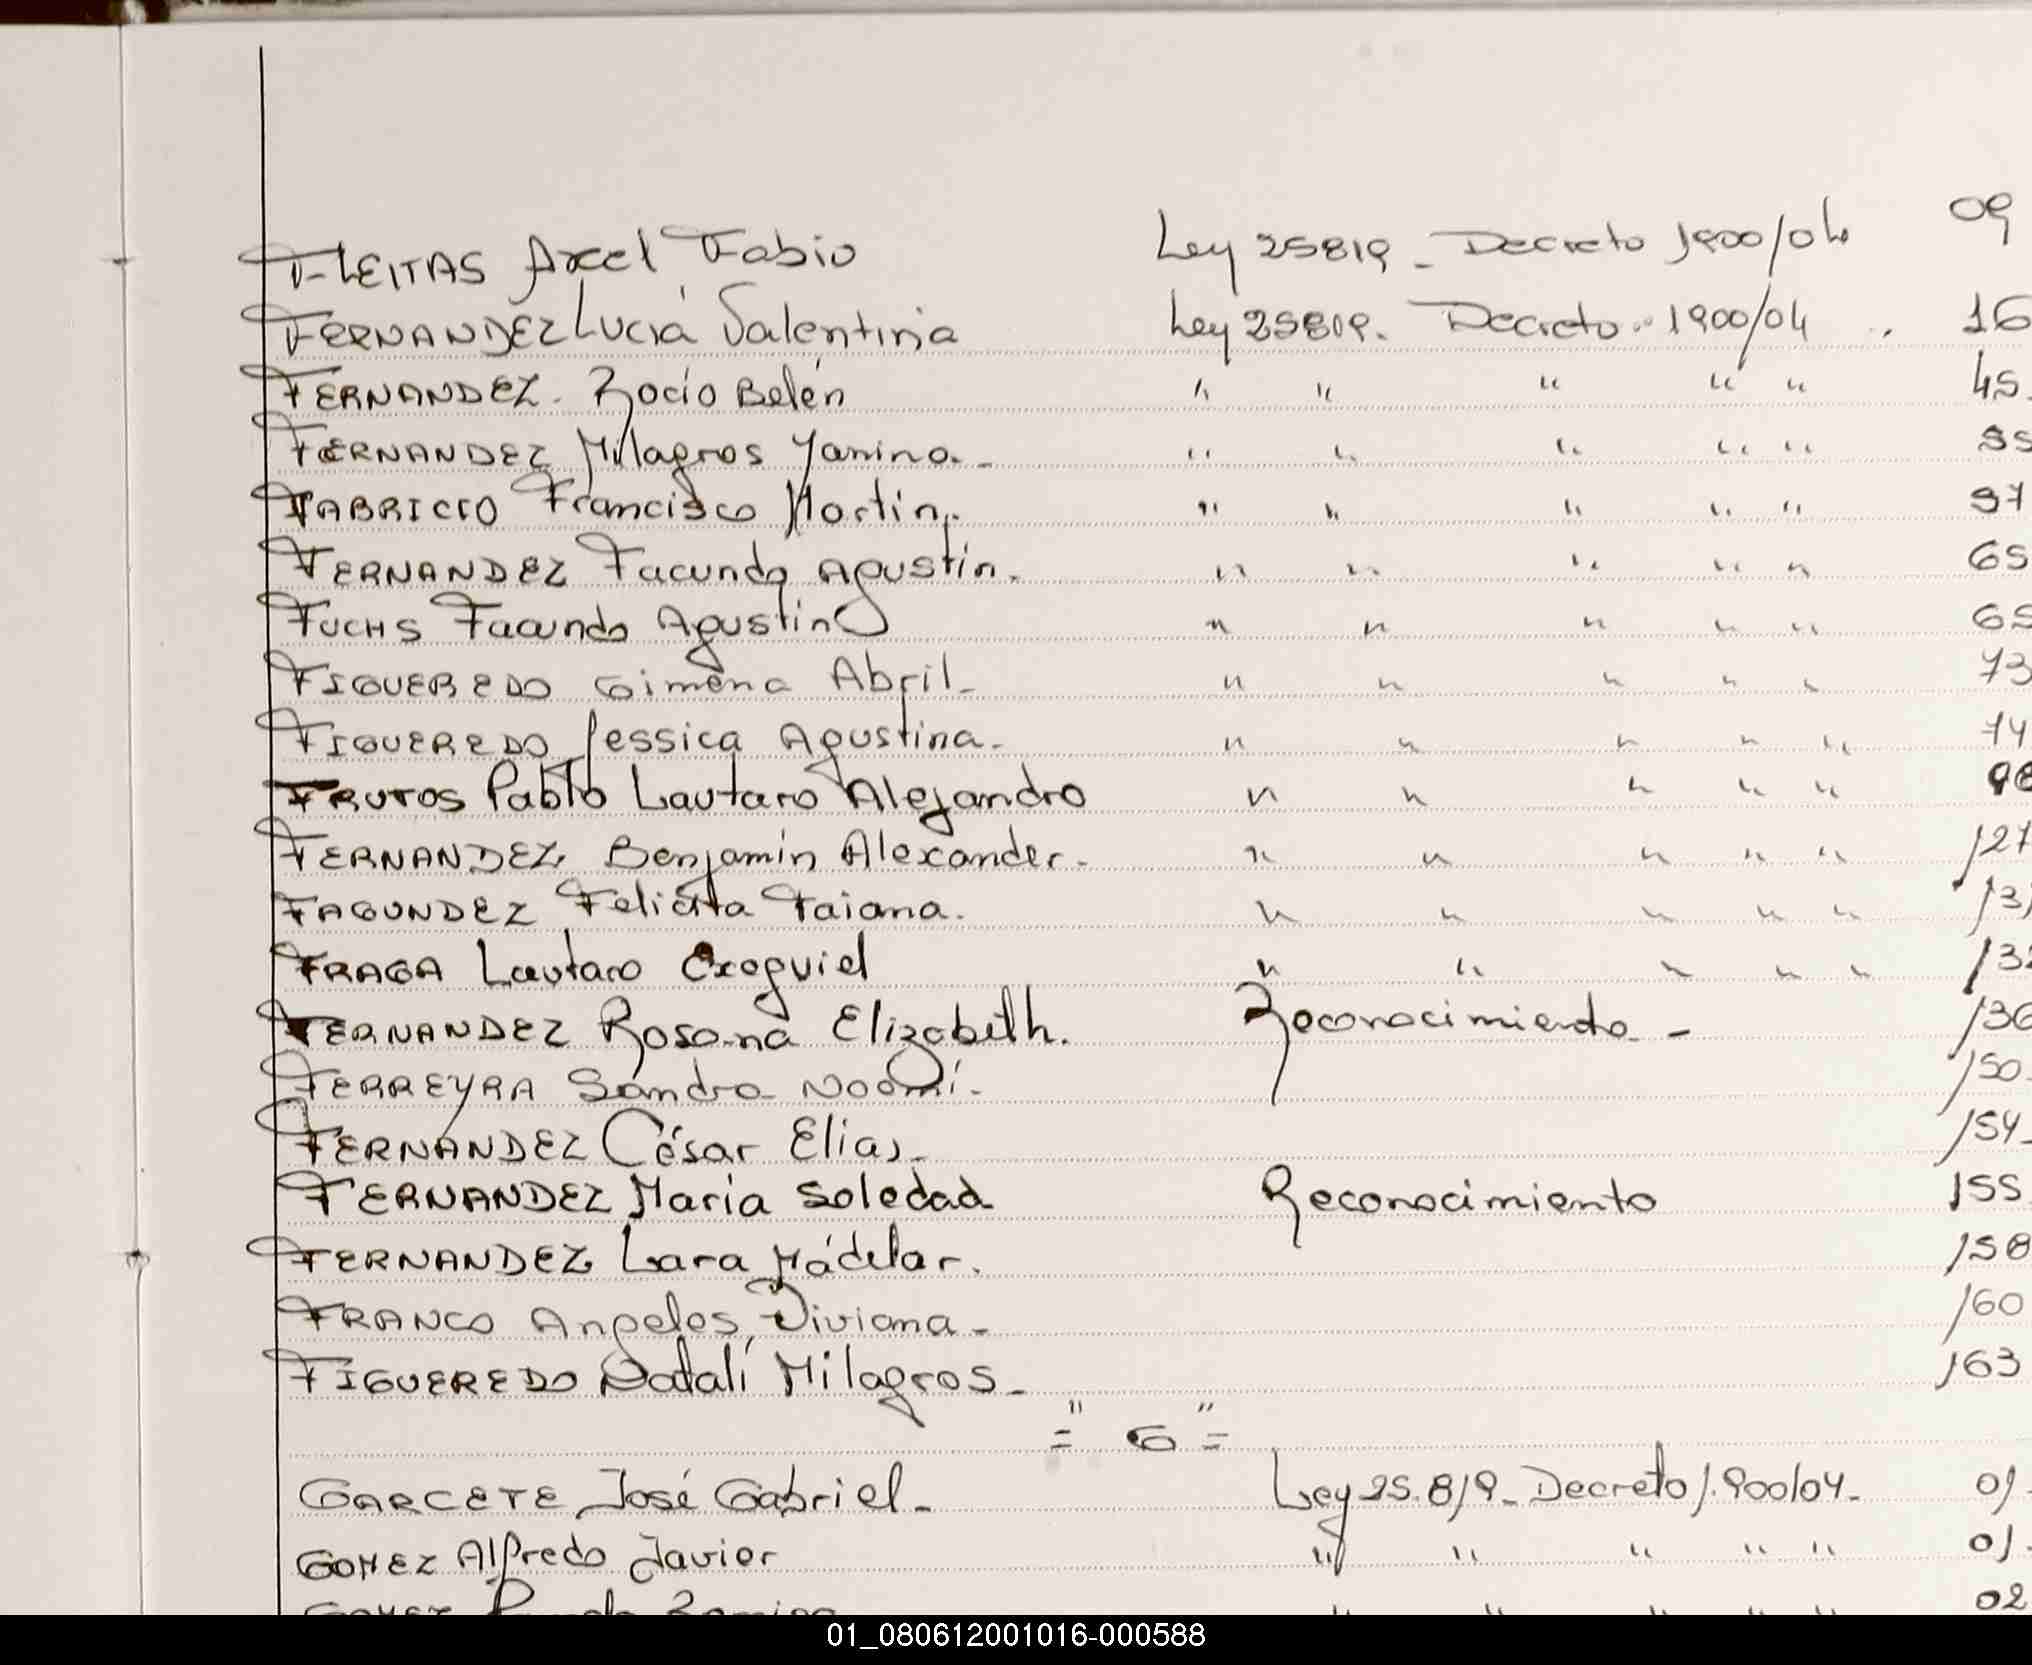 FLEITAS Axel Fabio Ley 25819 - Decreto 1900/04 09
FERNANDEZ Lucía Valentina Ley 25819. Decreto 1900/04 . 16
FERNANDEZ. Rocío Belén " " " " " 45.
FERNANDEZ Milagros Yanina - " " " " "
FABRICIO Francisco Martín. " " " " "
FERNANDEZ Facundo Agustín. " " " " " 65
FUCHS Facundo Agustín " " " " " 65
FIGUEREDO Gimena Abril - " " " " " 73
FIGUEREDO Jessica Agustina - " " " " " 74
FRUTOS Pablo Lautaro Alejandro " " " " "
FERNANDEZ Benjamín Alexander - " " " " " 127
FAGUNDEZ Felicita Taiana. " " " " "
FRAGA Lautaro Exequiel " " " " "
FERNANDEZ Rosana Elizabeth. Reconocimiento - 136
FERREYRA Sandra Noemí - 150.
FERNÁNDEZ César Elías - 154 -
FERNANDEZ María Soledad Reconocimiento 155
FERNANDEZ Lara 158
FRANCO Angeles Viviana - 160
FIGUEREDO Natalí Milagros - 163
= " G " =
GARCETE José Gabriel - Ley 25.819 - Decreto 1.900/04 - 01.
GOMEZ Alfredo Javier " " " " " 01.
02